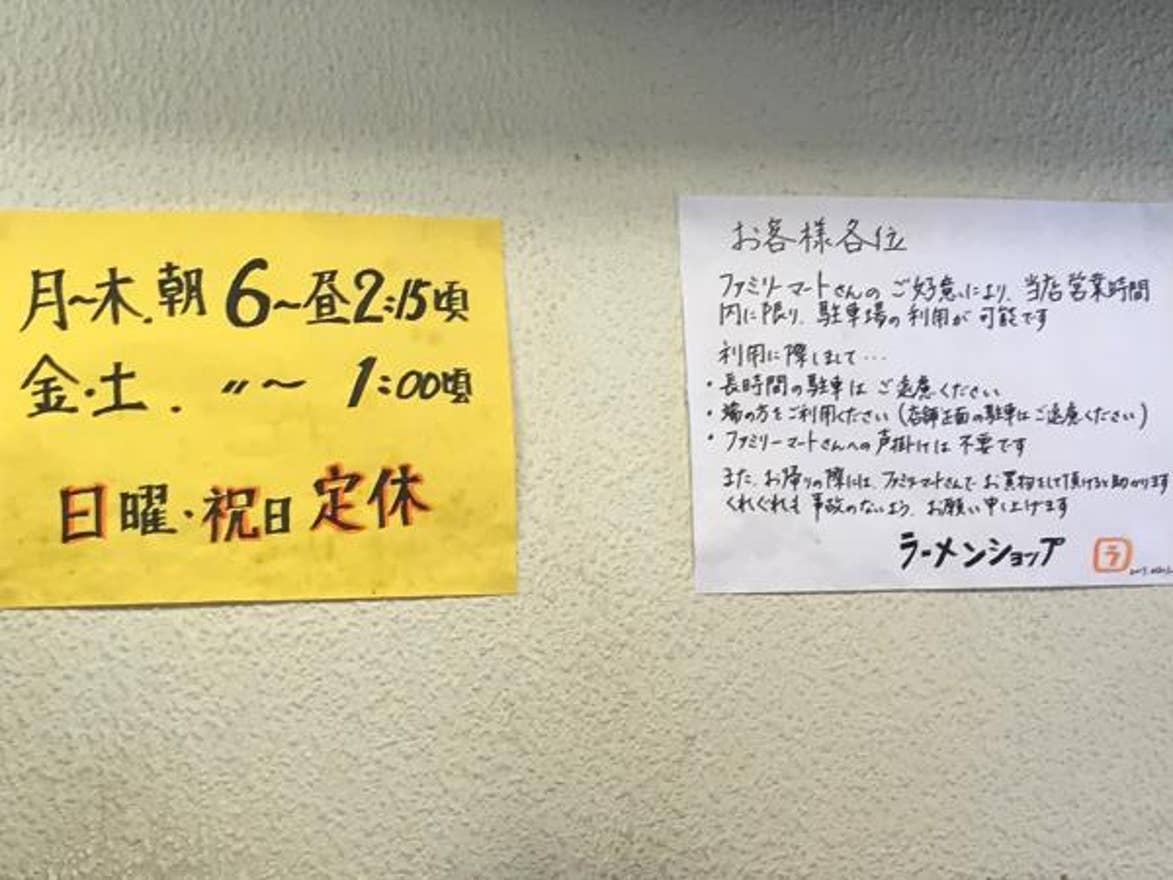 月〜木.朝6〜昼2:15頃
金・土. 〃〜 1:00頃
日曜・祝日定休
お客様各位
ファミリーマートさんのご好意により、当店営業時間
内に限り、駐車場の利用が可能です
利用に際しまして…
・長時間の駐車はご遠慮ください
・端の方をご利用ください(店舗正面の駐車はご遠慮ください)
・ファミリーマートさんへの声掛けは不要です
また、お帰りの際には、ファミリーマートさんで、お買物をして頂けると助かります
くれぐれも事故のないよう、お願い申し上げます
ラーメンショップ ラ